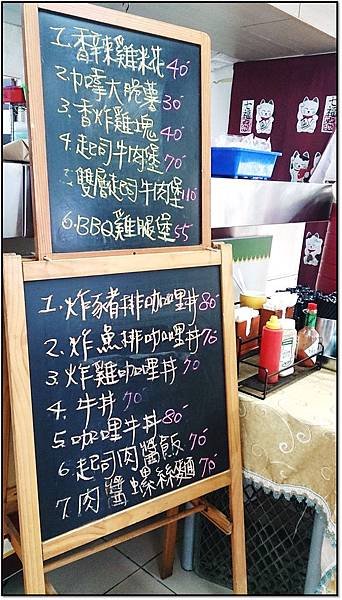 1.香辣雞米花40
2.咔拿大脆薯30
3.香炸雞塊40
4.起司牛肉堡70
5.雙層起司牛肉堡110
6.BBQ雞腿堡55
1.炸豬排咖哩丼80
2.炸魚排咖哩丼70
3.炸雞咖哩丼70
4.牛丼70
5.咖哩牛丼80
6.起司肉醬飯70
7.肉醬螺絲麵70